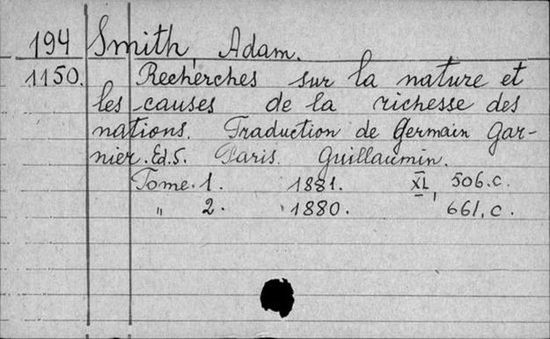 194 Smith, Adam.
1150. Recherches sur la nature et
les causes de la richesse des
nations. Traduction de Germain Gar-
nier. Ed. 5. Paris. Guillaumin.
Tome. 1. 1881. XL, 506.c.
" 2. 1880. 661, c.